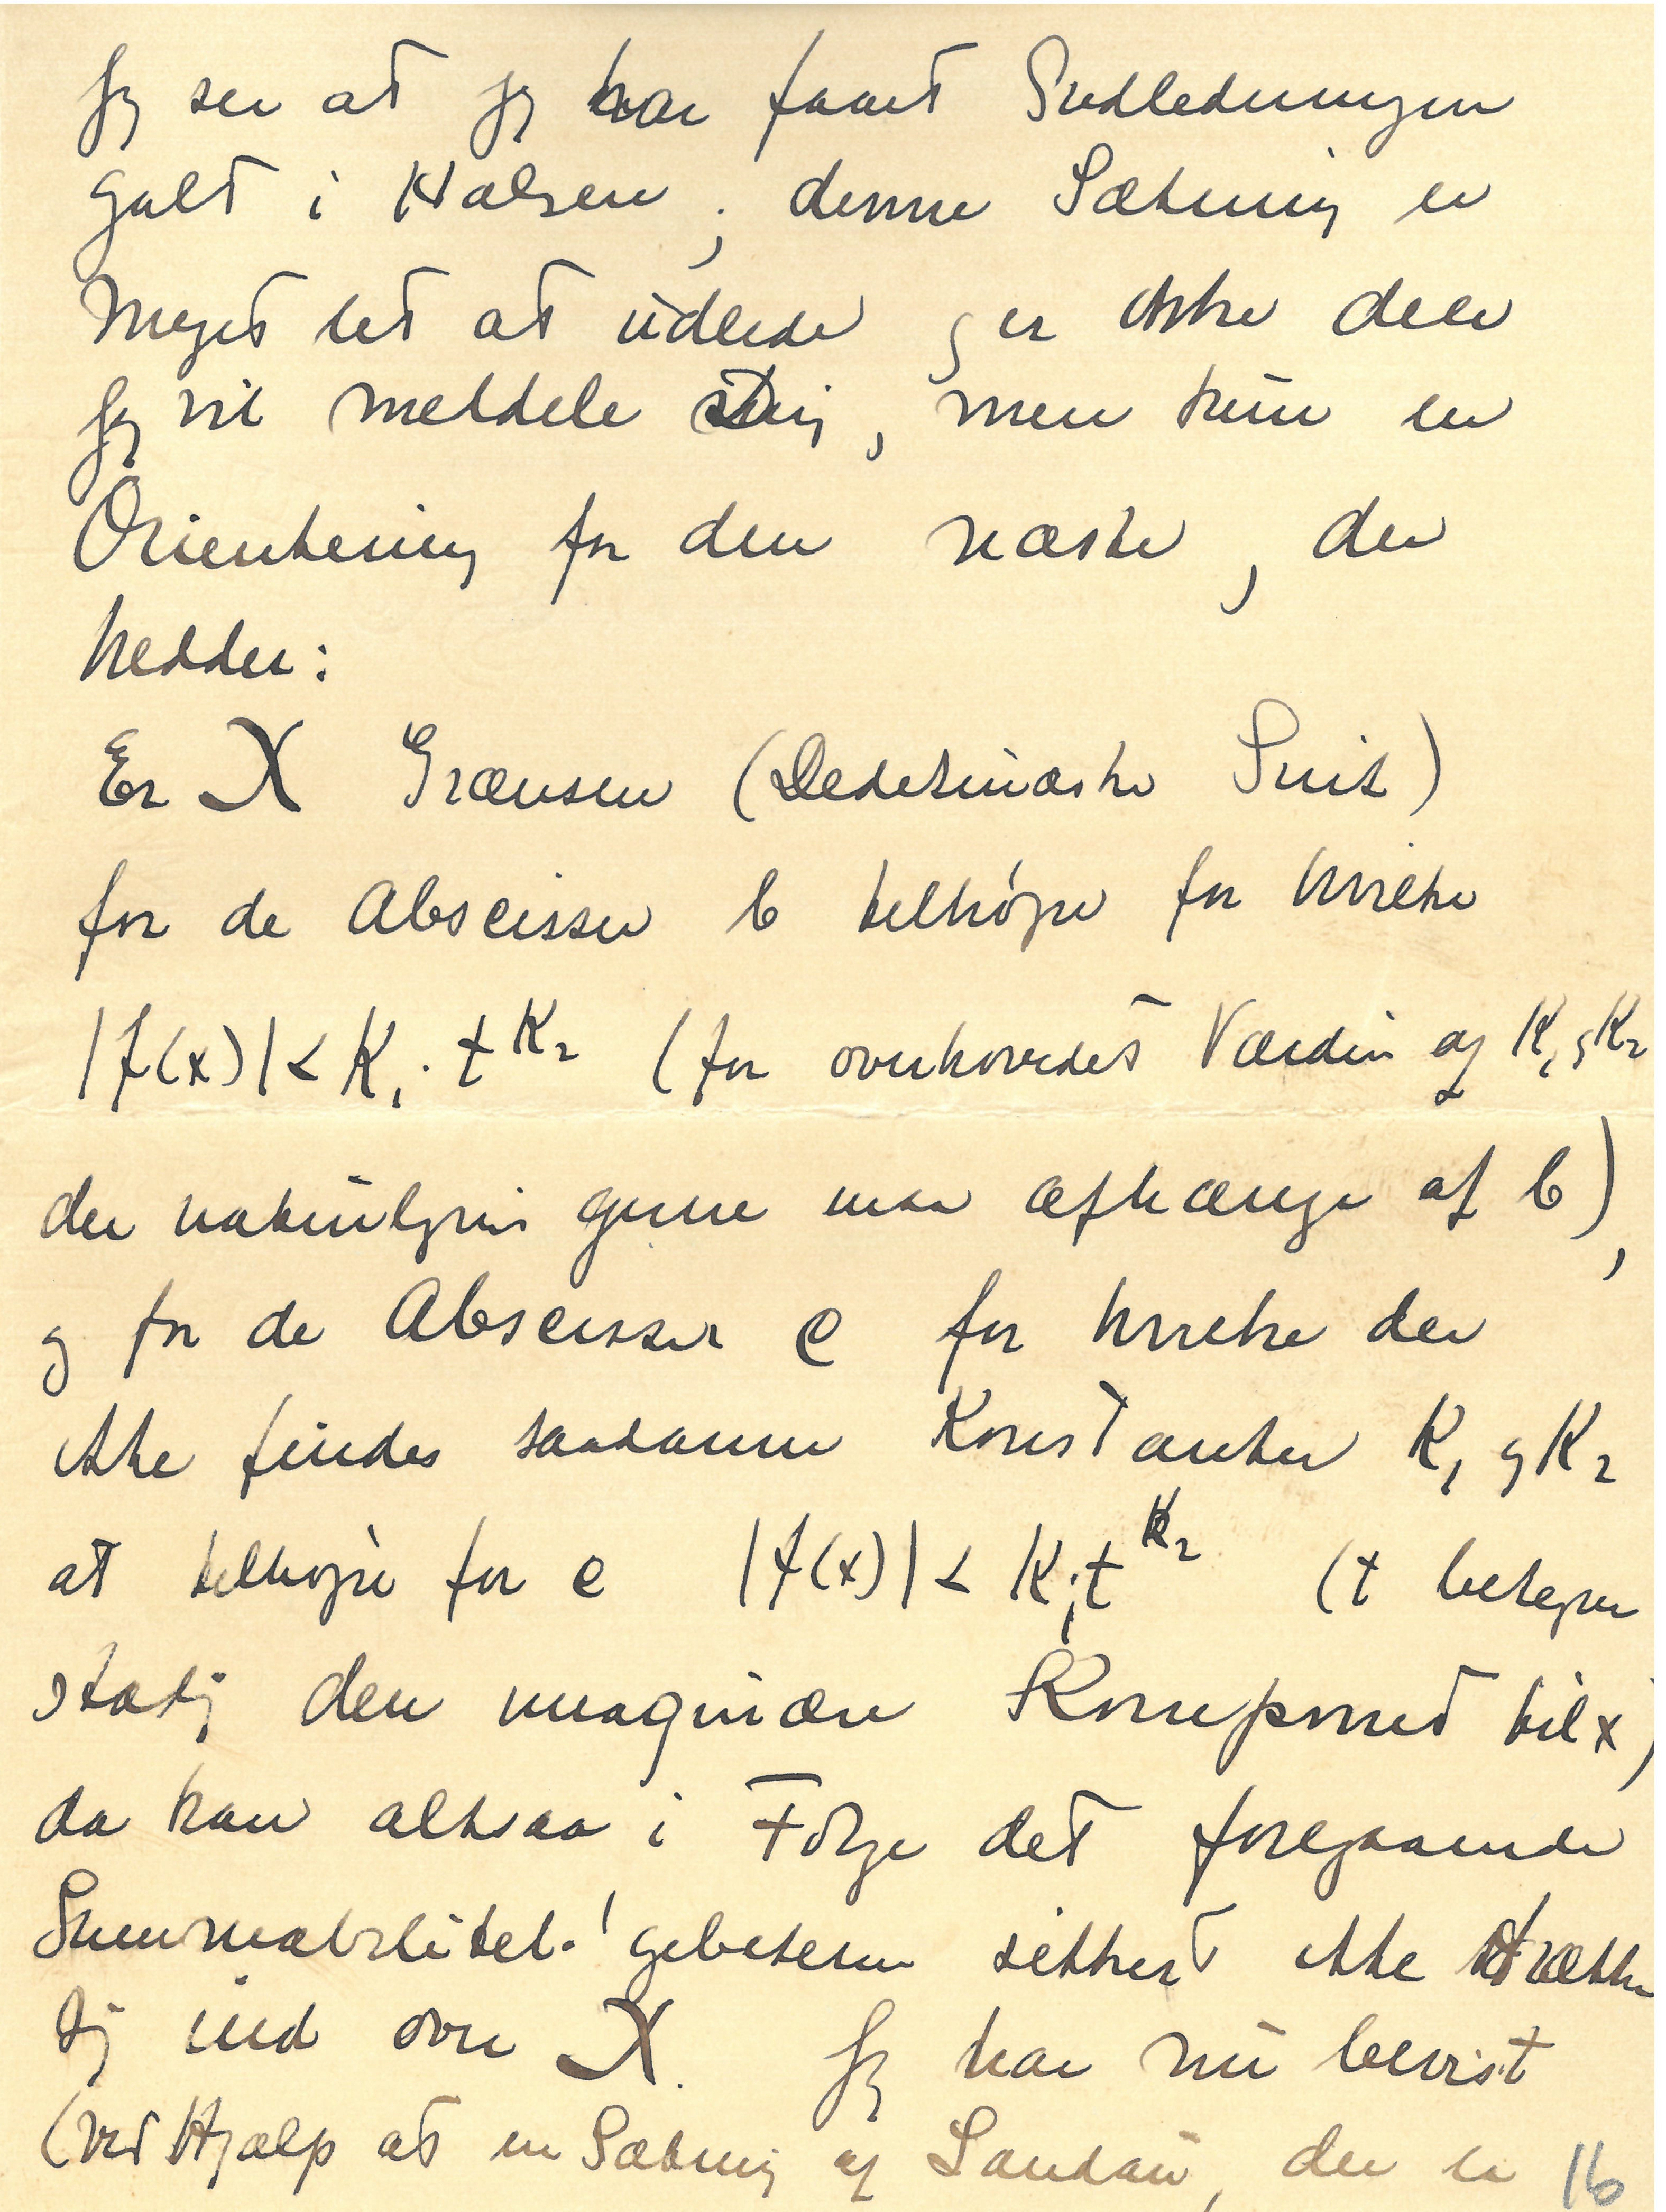 Jeg ser at jeg har faaet Indledningen
galt i Halsen; denne Sætning er
meget let at udlede, og er ikke den
jeg vil meddele Dig, men kun en
Orientering for den næste, der
hedder:
Er X Grænsen (Dedekindske Snit)
for de Abscisser b tilhøjre for hvilke
|f(x)| < K₁·t^K₂ (for overhovedet Værdier af K₁ og K₂
der naturligvis gerne maa afhænge af b),
og for de Abscisser c for hvilke der
ikke findes saadanne Konstanter K₁ og K₂
at tilhøjre for c |f(x)| < K₁t^K₂ (t betegner
stadig den imaginære Komposant til x)
da kan altsaa i Følge det foregaaende
Summabilitetsgebeterne sikkert ikke strække
sig ind over X. Jeg har nu bevist
(ved Hjælp af en Sætning af Landau, der er 16